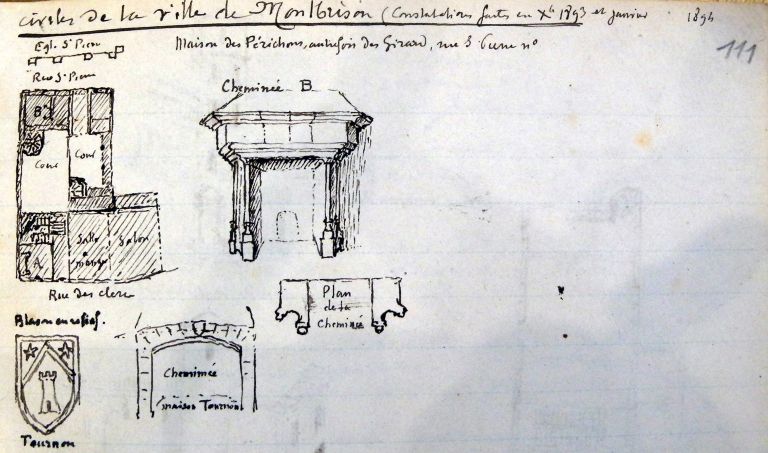 civiles de la ville de Montbrison (Constatations faites en Xbre 1893 et janvier 1894
111
Maison des Périchons, autrefois des Girard, rue S. Pierre n°
Egl. St Pierre
Rue St Pierre
B
Cour
Cour
Salle
à
manger
Salon
A
Rue des clercs
Cheminée B
Plan
de la
Cheminée
Blason en relief.
Tournon
Cheminée
maison Tournon